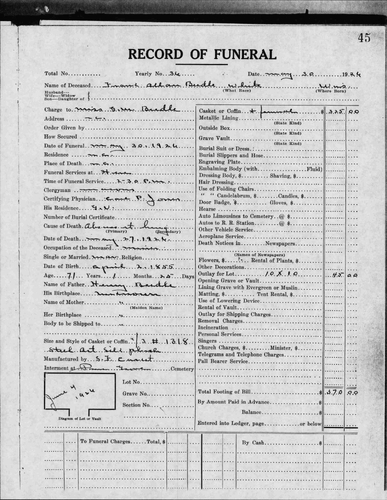 45
RECORD OF FUNERAL
Total No. Yearly No. 36 Date May 30 1926
Name of Deceased Frank Allan Beedle White Wis.
Husband
Wife—Widow of (What Race)
Son—Daughter of
Charge to Miss G.M. Beedle
Address
Order Given by
How Secured
Date of Funeral May 30, 1926
Residence
Place of Death
Funeral Services at Here
Time of Funeral Service 2-30 P.M.
Clergyman
Certifying Physician Jones
His Residence
Number of Burial Certificate
Cause of Death Abscess of lung
(Primary) (Secondary)
Date of Death May 27, 1926
Occupation of the Deceased
Single or Married Mar. Religion
Date of Birth April 2, 1855
Age 71 Years 1 Months 25 Days
Name of Father Henry Beedle
His Birthplace
Name of Mother
(Maiden Name)
Her Birthplace
Body to be Shipped to
Size and Style of Casket or Coffin 1318
Manufactured by S.F. Casket
Interment at Cemetery
Lot No.
Grave No.
Section No.
June 4 1926
Diagram of Lot or Vault
Casket or Coffin + funeral $ 325 00
Metallic Lining
(State Kind)
Outside Box
(State Kind)
Grave Vault
(State Kind)
Burial Suit or Dress
Burial Slippers and Hose
Engraving Plate
Embalming Body (with Fluid)
Dressing Body, $ Shaving, $
Hair Dressing
Use of Folding Chairs
" " Candelabrum, $ Candles, $
Door Badge, $ Gloves, $
Hearse
Auto Limousines to Cemetery @ $
Autos to R. R. Station @ $
Other Vehicle Service
Aeroplane Service
Death Notices in Newspapers
(Names of Newspapers)
Flowers, $ Rental of Plants, $
Other Decorations
Outlay for Lot 10 x 10 45 00
Opening Grave or Vault
Lining Grave with Evergreen or Muslin
Matting, $ Tent Rental, $
Use of Lowering Device
Rental of Vault
Outlay for Shipping Charges
Removal Charges
Incineration
Personal Services
Singers
Church Charges, $ Minister, $
Telegrams and Telephone Charges
Pall Bearer Service
Total Footing of Bill $ 370 00
By Amount Paid in Advance
Balance $
Entered into Ledger, page or below
To Funeral Charges, Total $ By Cash $